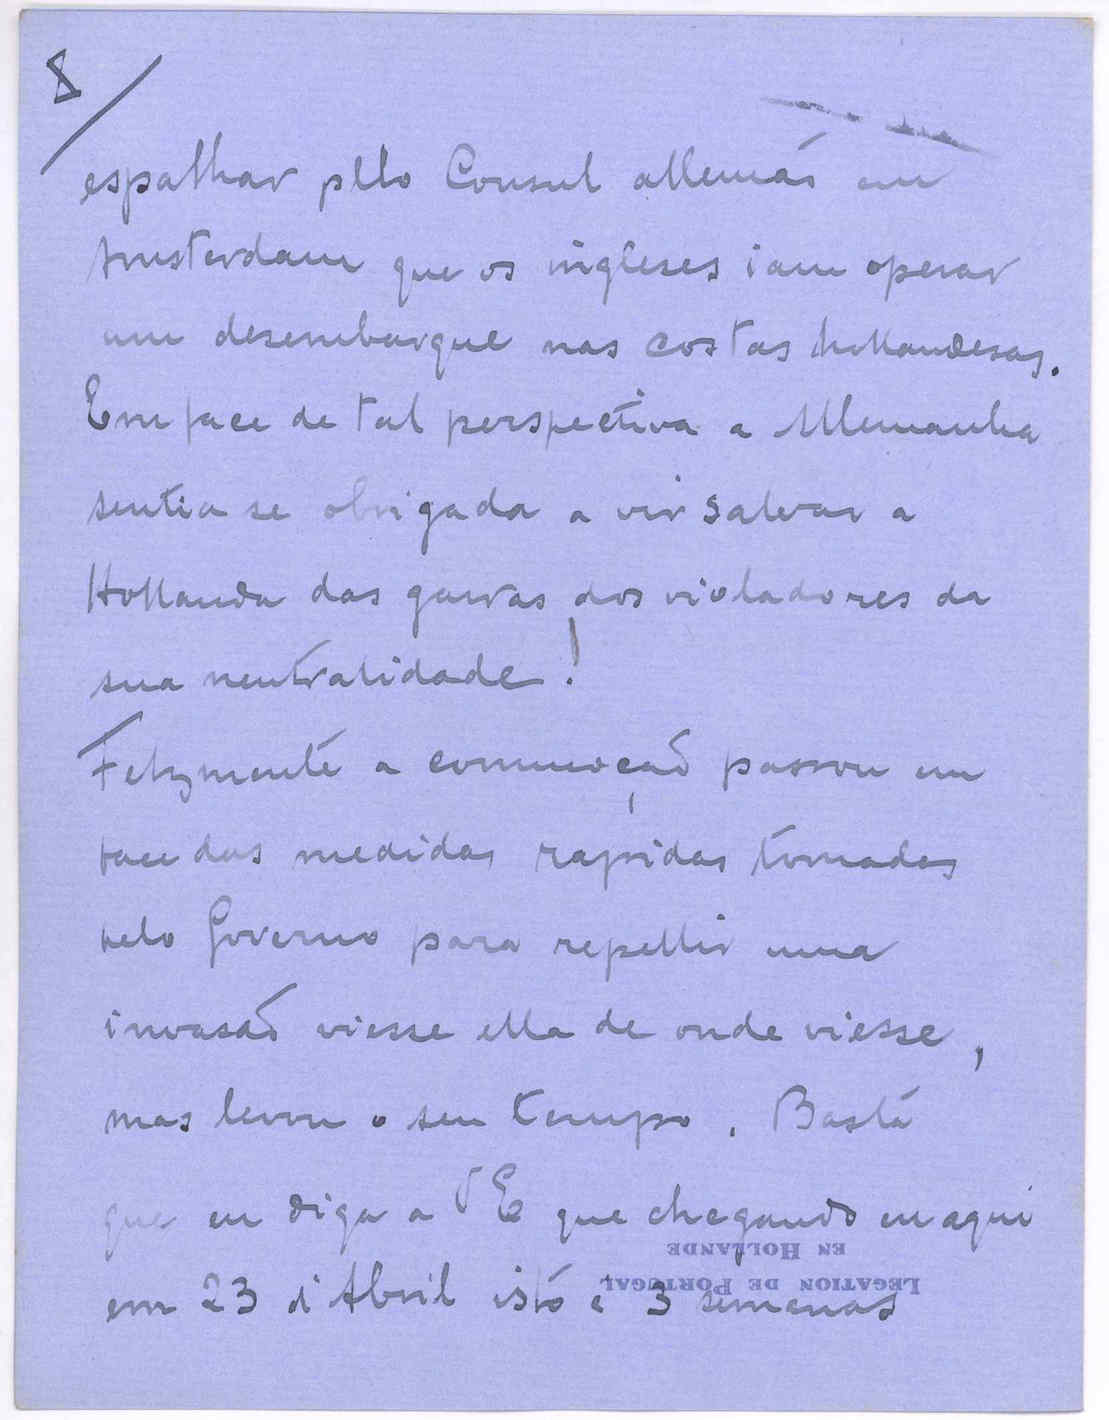 8
espalhar pello Consul allemão em
Amsterdam que os ingleses iam operar
um desembarque nas costas hollandesas.
Em face de tal perspectiva a Allemanha
sentia se obrigada a vir salvar a
Hollanda das garras dos violadores da
sua neutralidade!
Felizmente a commoção passou em
face das medidas rapidas tomadas
pelo Governo para repellir uma
invasão viesse ella de onde viesse,
mas levou o seu tempo. Basta
que eu diga a V E que chegando eu aqui
em 23 d'Abril isto é 3 semanas
LEGATION DE PORTUGAL
EN HOLLANDE